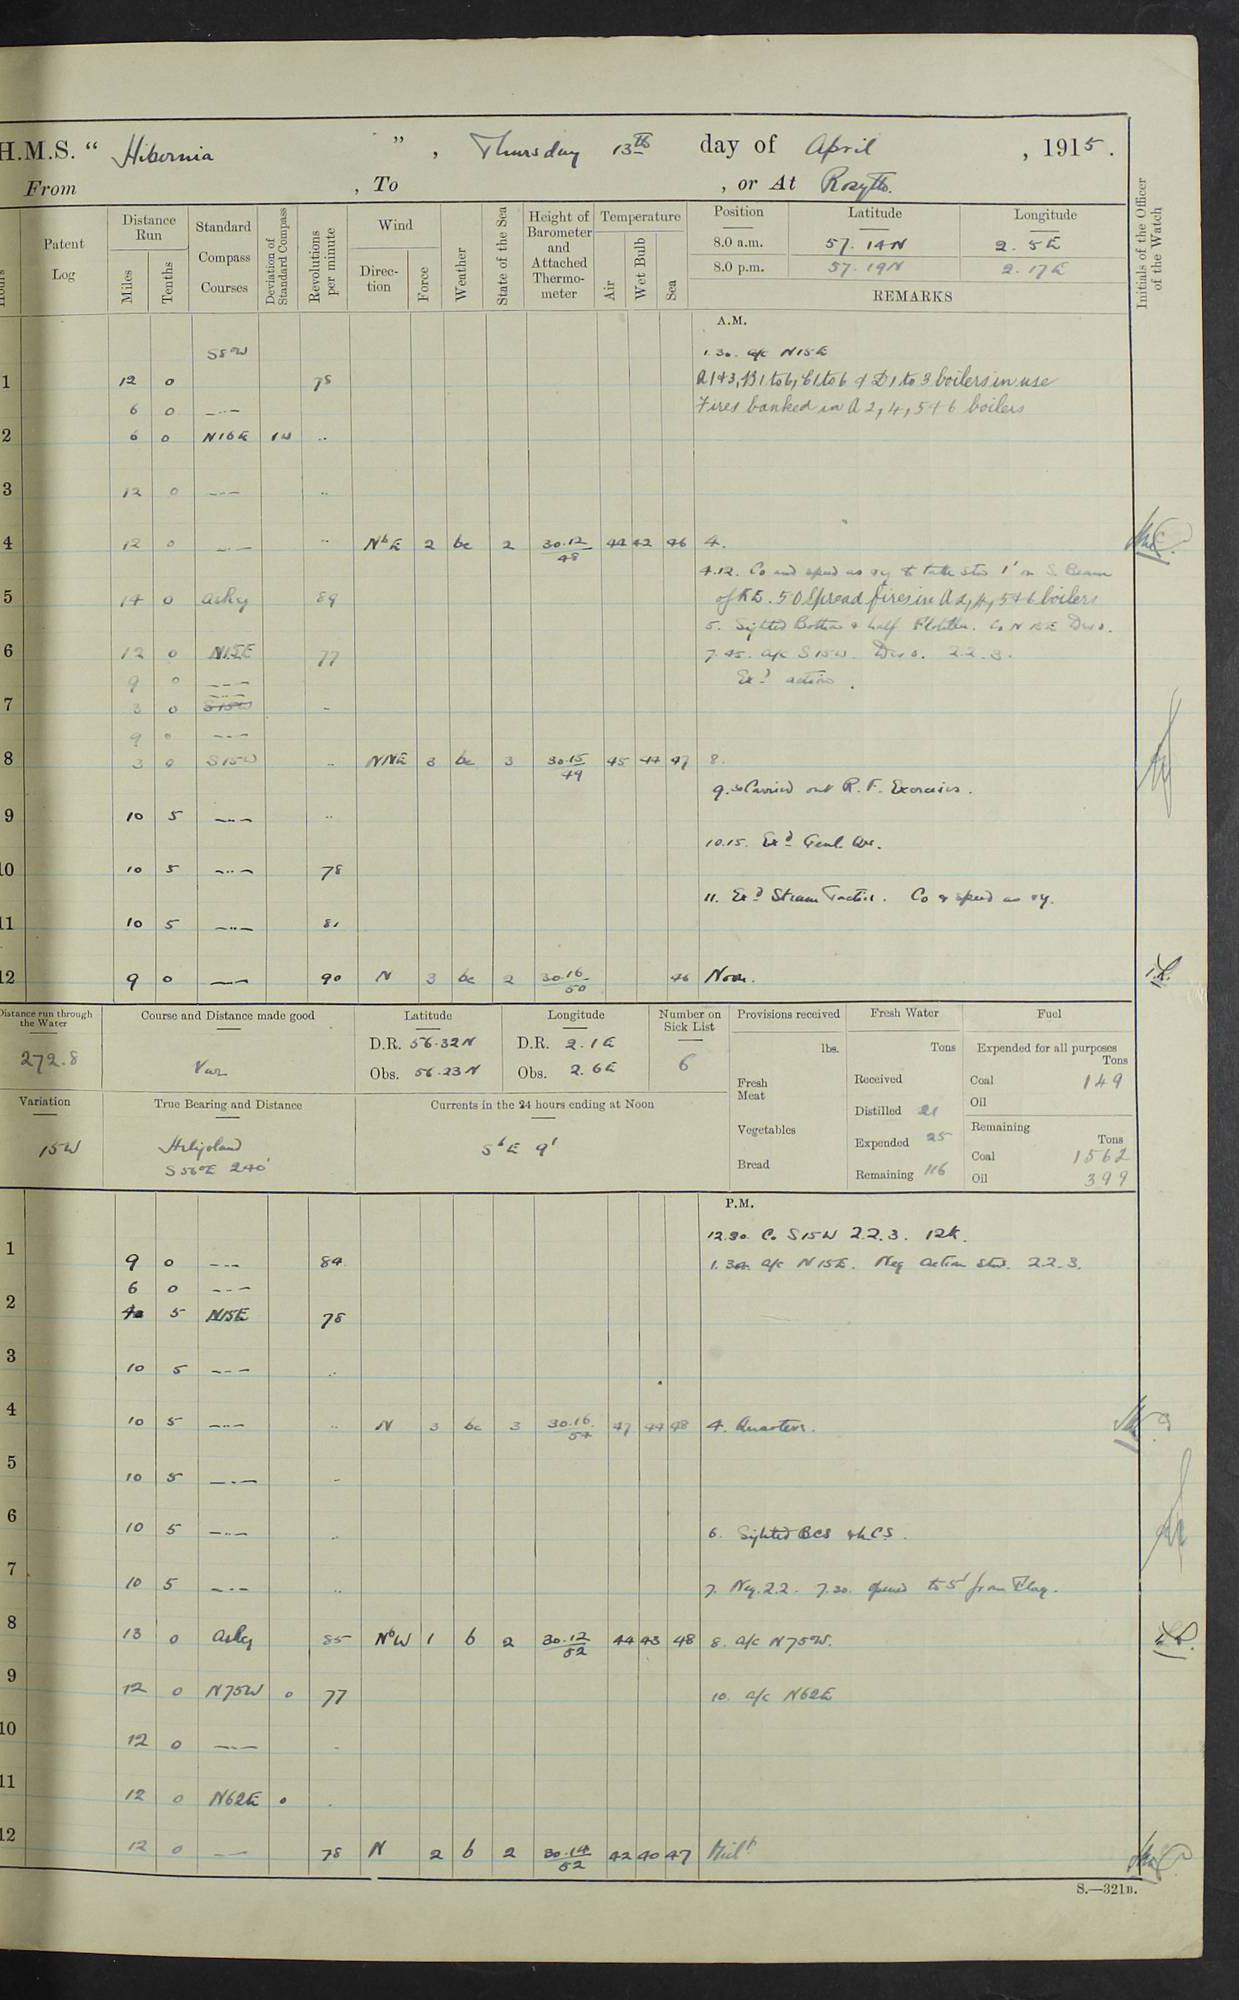 H.M.S. " Hibernia ", Thursday 13th day of April , 1915.
From , To , or At Rosyth.
Hours
Patent Log
Distance Run
Miles
Tenths
Standard Compass Courses
Deviation of Standard Compass
Revolutions per minute
Wind
Direction
Force
Weather
State of the Sea
Height of Barometer and Attached Thermometer
Temperature
Air
Wet Bulb
Sea
Position Latitude Longitude
8.0 a.m. 57. 14 N 2. 5 E
8.0 p.m. 57. 19 N 2. 17 E
REMARKS
Initials of the Officer of the Watch
A.M.
1.30. a/c N15E
1 12 0 78 A1+3, B1 to 6, C1 to 6 & D1 to 3 boilers in use
6 0 -..- Fires banked in A 2, 4, 5+6 boilers
2 6 0 N15E 1W ..
3 12 0 --- ..
4 12 0 -..- .. NbE 2 bc 2 30.12/48 44 42 46 4.
4.12. Co and speed as rq to take stn 1' on S. Beam
5 14 0 as rq 89 of KE. 5.0 Spread fires in A 2, 4, 5+6 boilers
5. Sighted & half Flotilla. Co N 15 E
6 12 0 N15E 77 7.45. a/c S15W. 2.2.3.
9 0 --- Exd action.
7 3 0 S15W -
9 0 ---
8 3 0 S15W .. NNE 3 bc 3 30.15/49 45 44 47 8.
9.30 Carried out R.F. Exercises.
9 10 5 -..- ..
10.15. Exd Genl. Qrs.
10 10 5 -..- 78
11. Exd Steam Tactics. Co & speed as rq.
11 10 5 -..- 81
12 9 0 -..- 90 N 3 bc 2 30.16/50 46 Noon.
Distance run through the Water
272.8
Course and Distance made good
Var
Latitude
D.R. 56.32 N
Obs. 56.23 N
Longitude
D.R. 2.1 E
Obs. 2.6 E
Number on Sick List
6
Provisions received
lbs.
Fresh Meat
Vegetables
Bread
Fresh Water
Tons
Received
Distilled 21
Expended 25
Remaining 116
Fuel
Expended for all purposes
Tons
Coal 149
Oil
Remaining
Tons
Coal 1562
Oil 399
Variation
15W
True Bearing and Distance
Heligoland
S 56°E 240'
Currents in the 24 hours ending at Noon
SbE 9'
P.M.
12.30. Co S15W 2.2.3. 12K.
1 9 0 --- 84 1.30. a/c N15E. Neg action stns. 2.2.3.
6 0 ---
2 5 N15E 78
3 10 5 --- ..
4 10 5 -..- .. N 3 bc 3 30.16/54 47 44 48 4. Quarters.
5 10 5 -.- -
6 10 5 -..- .. 6. Sighted BCS & LCS.
7 10 5 -.- .. 7. Neg. 2.2. 7.30. opened to 5' from Flag.
8 13 0 as rq 85 NbW 1 b 2 30.12/52 44 43 48 8. a/c N75W.
9 12 0 N75W 0 77 10. a/c N62E
10 12 0 -..- -
11 12 0 N62E 0 .
12 12 0 -- 78 N 2 b 2 30.14/52 42 40 47 Midt
S.—321B.